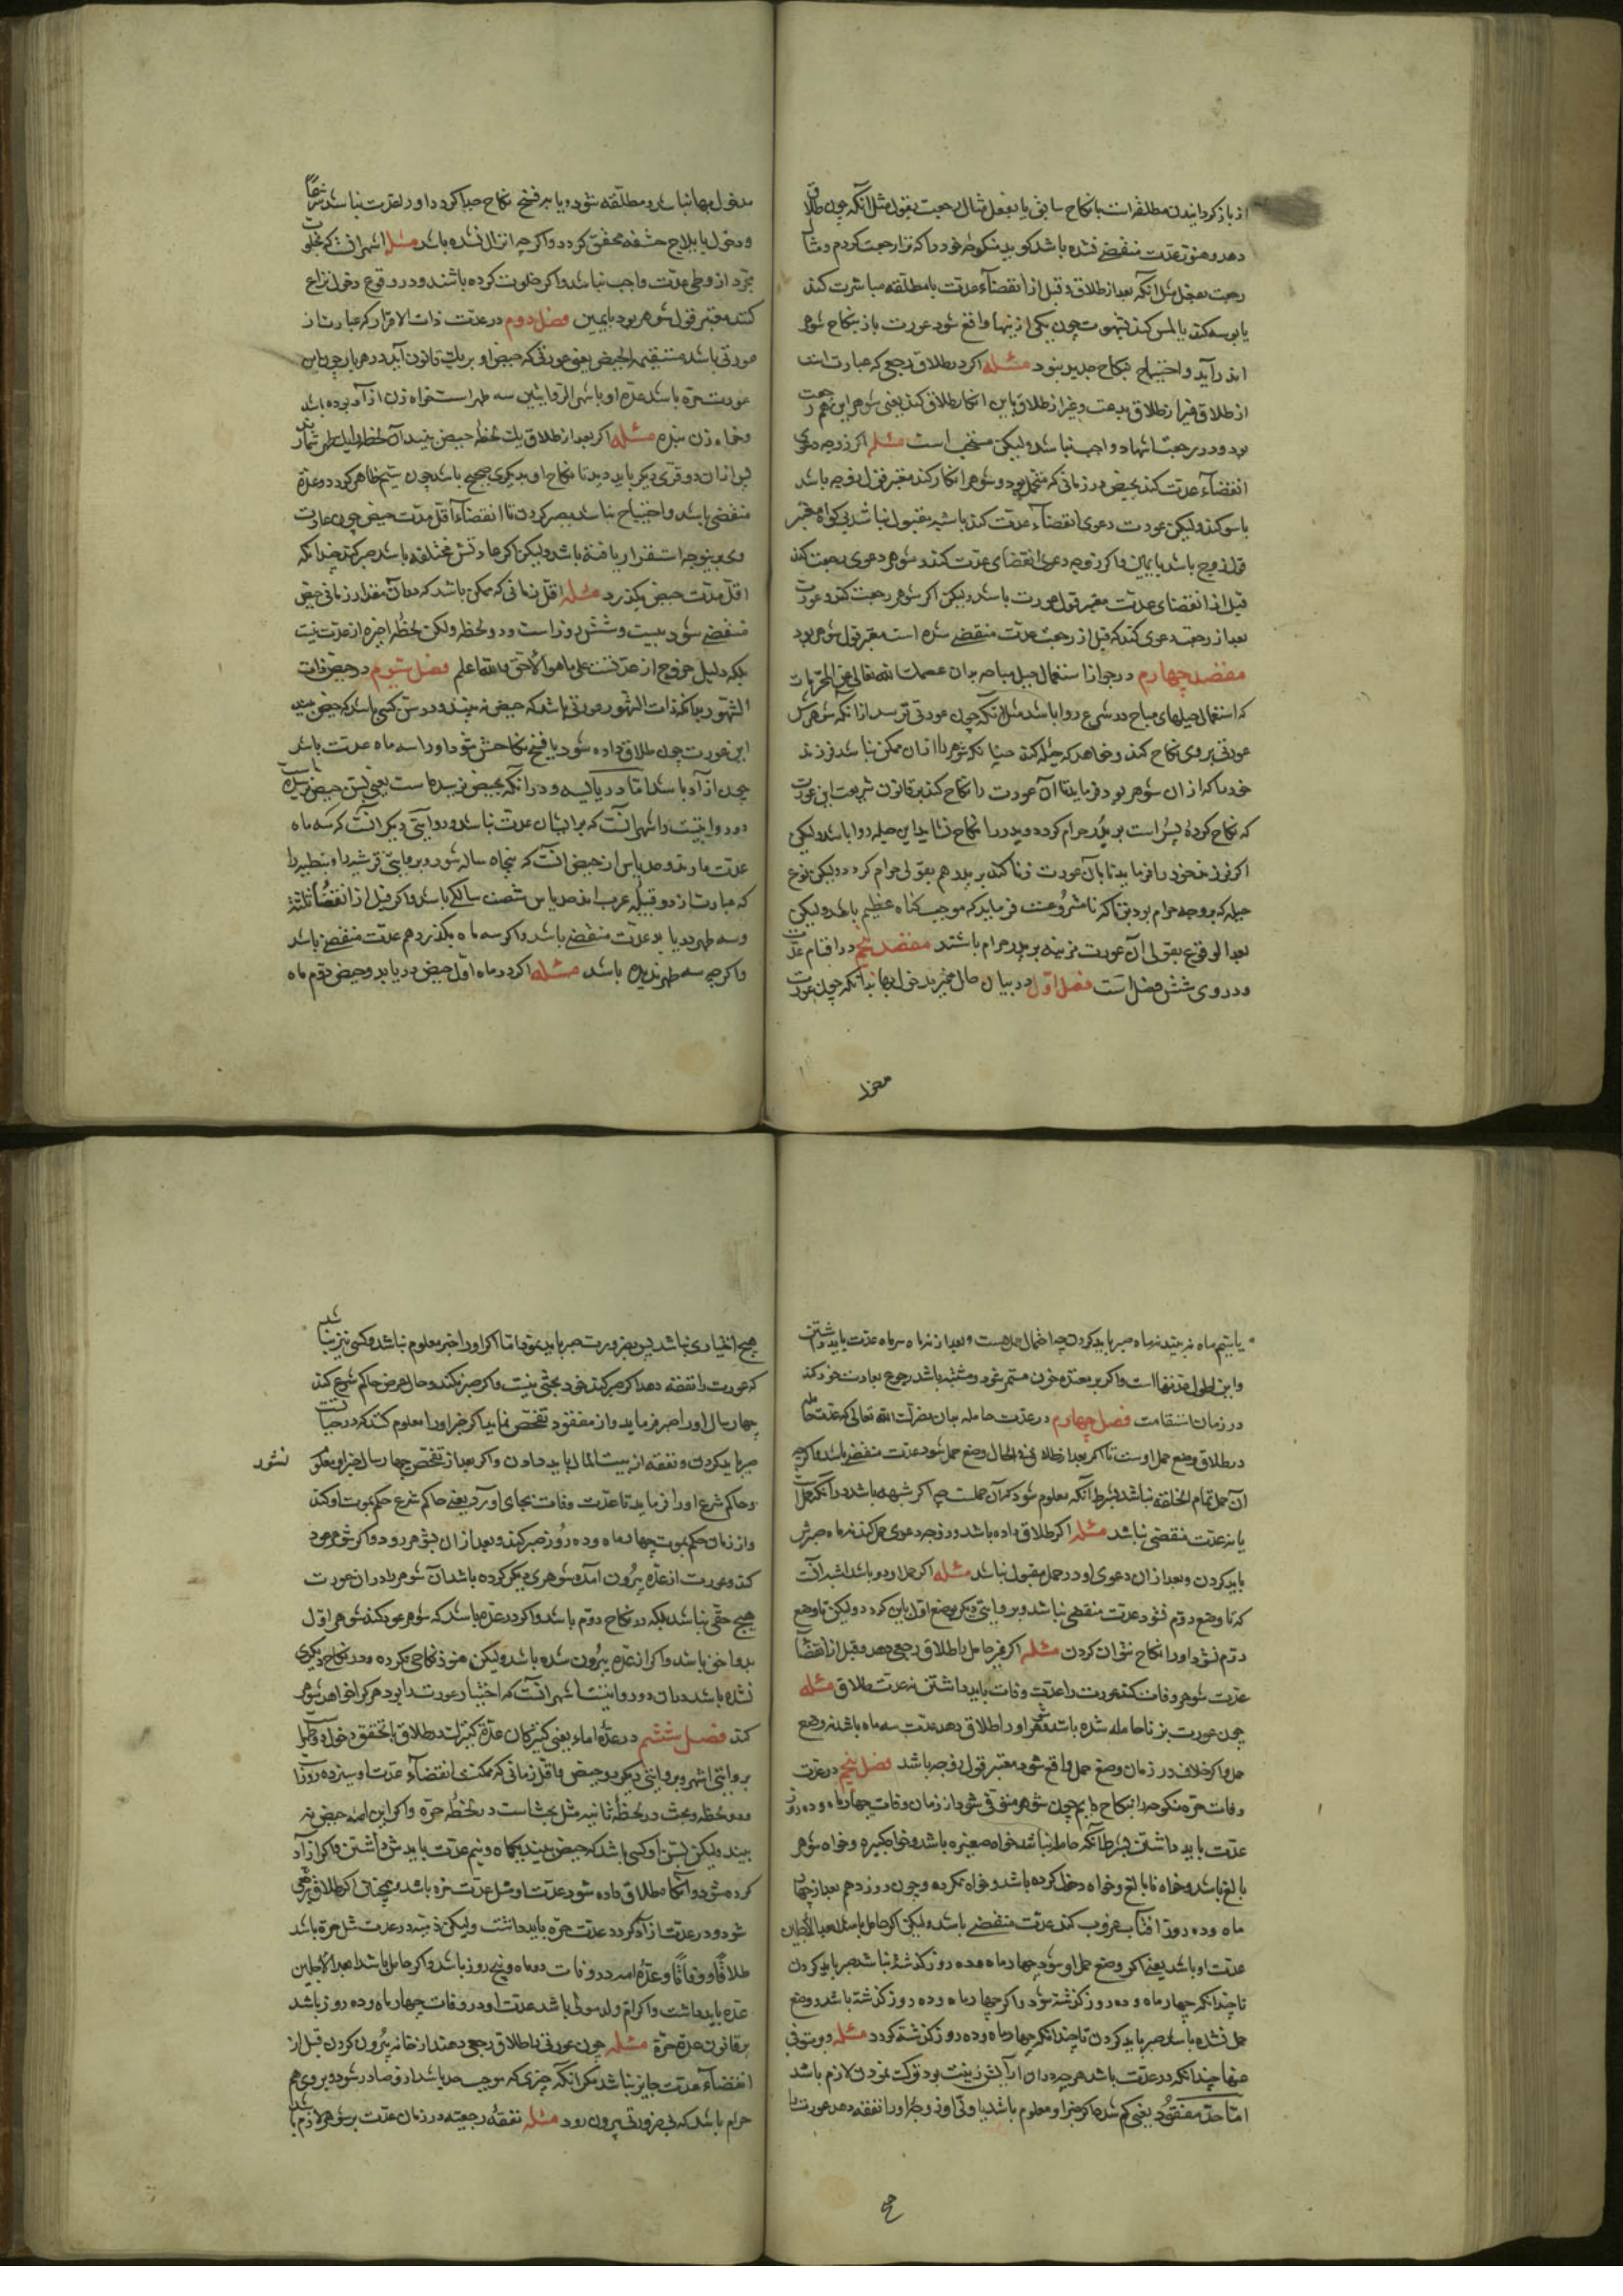 از باز کردانیدن مطلقه است بانکاح سابق یا بفعل مثال رجعت بقول مثل آنکه چون طلاق
دهد و هنوز عدت منقضی نشده باشد کوید بمنکوحه خود راکه ترا رجعت کردم و مثال
رجعت بفعل مثل آنکه بعد از طلاق و قبل از انقضاء عدت با مطلقه مباشرت کند
یا بوسه کند یا لمس کند بشهوت چون یکی از ینها واقع شود عورت باز بنکاح شوهر
اندر آید و احتیاج بنکاح جدید نبود مسئله اکر در طلاق رجعی که عبارت است
از طلاق غیر از طلاق بدعت و غیر از طلاق باین انکار طلاق کند یعنی شوهر این هم رجعت
بود و در رجعت اشهاد واجب نباشد ولیکن مستحب است مسئله اکر زوجه دعوی
انقضاء عدت کند بحیض در زمانی که محتمل بود و شوهر انکار کند معتبر قول زوجه باشد
با سوکند ولیکن عورت دعوی انقضاء عدت کند باشهر مقبول نباشد بی کواه معتبر
قول زوج باشد بایمین و اکر زوجه دعوی انقضای عدت کند و شوهر دعوی رجعت کند
قبل از انقضای عدت معتبر قول عورت باشد ولیکن اکر شوهر رجعت کند و عورت
بعد از رجعت دعوی کند که قبل از رجعت عدت منقضی شده است معتبر قول شوهر بود
مقصد چهارم در جواز استعمال حیل مباحه بدان عصمک الله تعالی عن المحرمات
که استعمال حیلهای مباح در شرع روا باشد مثل آنکه چون عورتی ترسد از آنکه شوهرش
عورتی بر وی نکاح کند و خواهد که حیله کند چنانکه شوهر را از آن ممکن نباشد فرزند
خود را که از ان شوهر بود فرماید تا آن عورت را نکاح کند بر قانون شریعت این عورت
که نکاح کرده پسر است بر پدر حرام کردد و پدر را نکاح نشاید این حیله روا باشد ولیکن
اکر فرزند خود را فرماید تا با آن عورت زنا کند بر پدر هم بقولی حرام کردد ولیکن نوع
حیله که بر وجه حرام بود بزنا که نامشروعست فرماید که موجب کناه عظیم باشد ولیکن
بعد الوقوع بقولی آن عورت مزنیه بر پدر حرام باشد مقصد پنجم در اقسام عدت
و در وی شش فصل است فصل اول در بیان حال غیر مدخول بها بدانکه چون عورت
مدخول بها نباشد و مطلقه شود و یا بر فسخ نکاح جدا کردد او را عدت نباشد شرعاً
و دخول بایلاج حشفه محقق کردد و اکرچه انزال نشده باشد مسئله اشهر آنست که بخلوت
مجرد از وطی عدت واجب نباشد و اکر خلوت کرده باشند و در وقوع دخول نزاع
کنند معتبر قول شوهر بود بایمین فصل دوم در عدت ذات الاقرا که عبارت از
عورتی باشد مستقیمة الحیض یعنی عورتی که حیض او بر یک قانون آید در هر بار چون این
عورت حره باشد عده او باشهر الروایتین سه طهر است خواه زن ازآد بوده باشد
و خواه زن بنده مسئله اکر بعد از طلاق یک لحظه حیض بیند آن لحظه را یک طهر شمارند
پس از ان دو قرء دیکر باید دید تا نکاح او بدیکری صحیح باشد چون سیم ظاهر کردد و عده
منقضی باشد و احتیاج نباشد بصبر کردن تا انقضاء اقل مدت حیض چون عادت
وی بر ینوجه استقرار یافته باشد ولیکن اکر عادتش مختلفه باشد صبر کند چندانکه
اقل مدت حیض بکذرد مسئله اقل زمانی که ممکن باشد که در ان مقدار زمانی حیض
منقضی شود بیست و شش روز است و دو لحظه ولکن لحظه اخیره از عدت نیست
بلکه دلیل خروج از عدتست علی ما هو الاحق والله اعلم فصل سیوم در حیض ذات
الشهور بدانکه ذات الشهور عورتی باشد که حیض نه بیند و در سن کسی باشد که حیض بیند
این عورت چون طلاق داده شود یا فسخ نکاحش شود او را سه ماه عدت باشد
چون ازآد باشد اما در یائسه و در آنکه بحیض نرسیده است یعنی بسن حیض نرسیده
دو روایتست و اشهر آنست که بر ایشان عدت نباشد و روایتی دیکر آنست که سه ماه
عدت دارند و حد یاس از حیض آنست که پنجاه ساله شود و بروایتی قرشیه را و نبطیه را
که عبارت از دو قبیله عرب اند حد یاس شصت سالکی باشد و اکر قبل از انقضاء ثلثه
وسه طهر دریابد عدت منقضی باشد و اکر سه ماه بکذرد هم عدت منقضی باشد
و اکرچه سه طهر ندیده باشد مسئله اکر در ماه اول حیض دریابد و حیض دوم ماه
یا سیم ماه نه بیند نه ماه صبر باید کردن چه احتمال حمل هست و بعد از نه ماه سه ماه عدت باید داشتن
و این اطول عدتها است و اکر بر معتده خون مستمر شود و مشتبه باشد رجوع بعادت خود کند
در زمان استقامت فصل چهارم در عدت حامله بدان نصرک الله تعالی که عدت حامله
در طلاق وضع حمل اوست تا اکر بعد از طلاق فی الحال وضع حمل شود عدت منقضی باشد و اکرچه
آن حمل تمام الخلقه نباشد بشرط آنکه معلوم شود که آن حملست چه اکر شبهه باشد در آنکه حمل است
یا نه عدت منقضی نباشد مسئله اکر طلاق داده باشد و زوجه دعوی حمل کند نه ماه صبرش
باید کردن و بعد از ان دعوی او در حمل مقبول نباشد مسئله اکر حمل او دو باشد اشبه آنست
که تا وضع دوم نشود عدت منقضی نباشد و بروایتی دیکر بوضع اول باین کردد ولیکن تا وضع
دوم نشود او را نکاح نتوان کردن مسئله اکر غیر حامل را طلاق رجعی دهد و قبل از انقضاء
عدت شوهر وفات کند عورت را عدت وفات باید داشتن نه عدت طلاق مسئله
چون عورت بزنا حامله شده باشد و شوهر او را طلاق دهد عدت سه ماه باشد نه وضع
حمل و اکر خلاف در زمان وضع حمل واقع شود معتبر قول زوجه باشد فصل پنجم در عدت
وفات حره منکوحه را بنکاح دایم چون شوهر متوفی شود از زمان وفات چهار ماه و ده روز
عدت باید داشتن بشرط آنکه حامل نباشد خواه صغیره باشد و خواه کبیره و خواه شوهر
بالغ باشد و خواه نابالغ و خواه دخول کرده باشد و خواه نکرده و چون روز دهم بعد از چهار
ماه و ده روز افتاب غروب کند عدت منقضی باشد ولیکن اکر حامل باشد ابعد الاجلین
عدت او باشد یعنی اکر وضع حمل او شود چهار ماه و ده روز کذشته نباشد صبر باید کردن
تا چندانکه چهار ماه و ده روز کذشته شود و اکر چهار ماه و ده روز کذشته باشد و وضع
حمل نشده باشد صبر باید کردن تا چندانکه چهار ماه و ده روز کذشته کردد مسئله و متوفی
عنها چندانکه در عدت باشد هرچه در ان آرایش و زینت بود ترک نمودن لازم باشد
اما حد مفقود یعنی کم شده اکر خبر او معلوم باشد یا ولی او زوجه او را نفقه دهد عورت را
هیچ اختیاری نباشد پس بضرورت صبر باید نمود اما اکر او را خبر معلوم نباشد و کسی نیز نباشد
که عورت را نفقه دهد اکر صبر کند خود بحثی نیست و اکر صبر نکند و حال عرض حاکم شرع کند
چهار سال او را صبر فرماید و از مفقود تفحص نماید اکر خبر او را معلوم کنند که در حیاتست
صبر باید کردن و نفقه از بیت المال باید دادن و اکر بعد از تفحص چهار سال خبر او معلوم
نشود
و حاکم شرع او را فرماید تا عدت وفات بجای آورد یعنی حاکم شرع حکم بموت او کند
و از زمان حکم بموت چهار ماه و ده روز صبر کند و بعد از ان بشوهر رود و اکر شوهر عود
کند و عورت از عده برون آمده شوهری دیکر کرده باشد آن شوهر را در ان عورت
هیچ حقی نباشد بلکه در نکاح دوم باشد و اکر در عده باشد که شوهر عود کند شوهر اول
بدو احق باشد و اکر از عده برون شده باشد ولیکن هنوز نکاحی نکرده و در نکاح دیکری
نشده باشد در ان دو روایتست اشهر آنست که اختیار عورت را بود هر کرا خواهد شوهر
کند فصل ششم در عده اماء یعنی کنیزکان عده کنیزک در طلاق با تحقق دخول دو طهر است
بروایتی اشهر و بروایتی دیکر دو حیض و اقل زمانی که ممکنست انقضاء عدت او سیزده روز است
و دو لحظه و بحث در لحظه ثانیه مثل بحثست در لحظه حره و اکر این امه حیض نه
بیند ولیکن بسن او کسی باشد که حیض بیند یکماه و نیم عدت باید داشتن و اکر ازآد
کرده شود و انکاه طلاق داده شود عدت او مثل عدت حره باشد و همچنانک اکر طلاق رجعی
شود و در عدت ازآد کردد عدت حره باید داشت ولیکن ذمیه در عدت مثل حره باشد
طلاقاً و وفاةً و عده امه در وفات دو ماه و پنج روز باشد و اکر حامل باشد ابعد الاجلین
عده باید داشت و اکر ام ولد مولی باشد عدت او در وفات چهار ماه و ده روز باشد
بر قانون عده حره مسئله چون عورتی را طلاق رجعی دهند از خانه برون کردن قبل از
انقضاء عدت جایز نباشد مکر آنکه چیزی که موجب حد باشد از و صادر شود و بر وی هم
حرام باشد که بی ضرورتی بیرون رود مسئله نفقه رجعیه در زمان عدت بر شوهر لازم باشد